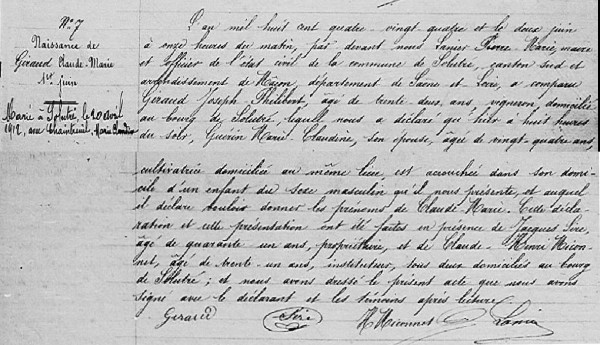 No 7
Naissance de
Giraud Claude-Marie
1er juin
Marié à Solutré, le 20 avril
1912, avec Chaintreuil, Marie Claudine
L'an mil huit cent quatre-vingt-quatre et le deux juin
à onze heures du matin, par devant nous Lanier Pierre Marie, maire
et officier de l'état civil de la commune de Solutré, canton sud et
arrondissement de Mâcon, département de Saône et Loire, a comparu
Giraud Joseph Philibert, âgé de trente deux ans, vigneron, domicilié
au bourg de Solutré, lequel nous a déclaré qu'hier à huit heures
du soir, Guérin Marie Claudine, son épouse, âgée de vingt-quatre ans
cultivatrice domiciliée au même lieu, est accouchée dans son domi-
cile d'un enfant du sexe masculin qu'il nous présente, et auquel
il déclare vouloir donner les prénoms de Claude Marie. Cette décla-
ration et cette présentation ont été faites en présence de Jacques
âgé de quarante un ans, propriétaire, et de Claude-Henri Mion-
net, âgé de trente un ans, instituteur, tous deux domiciliés au bourg
de Solutré; et nous avons dressé le présent acte que nous avons
signé avec le déclarant et les témoins après lecture.
Giraud H Mionnet Lanier